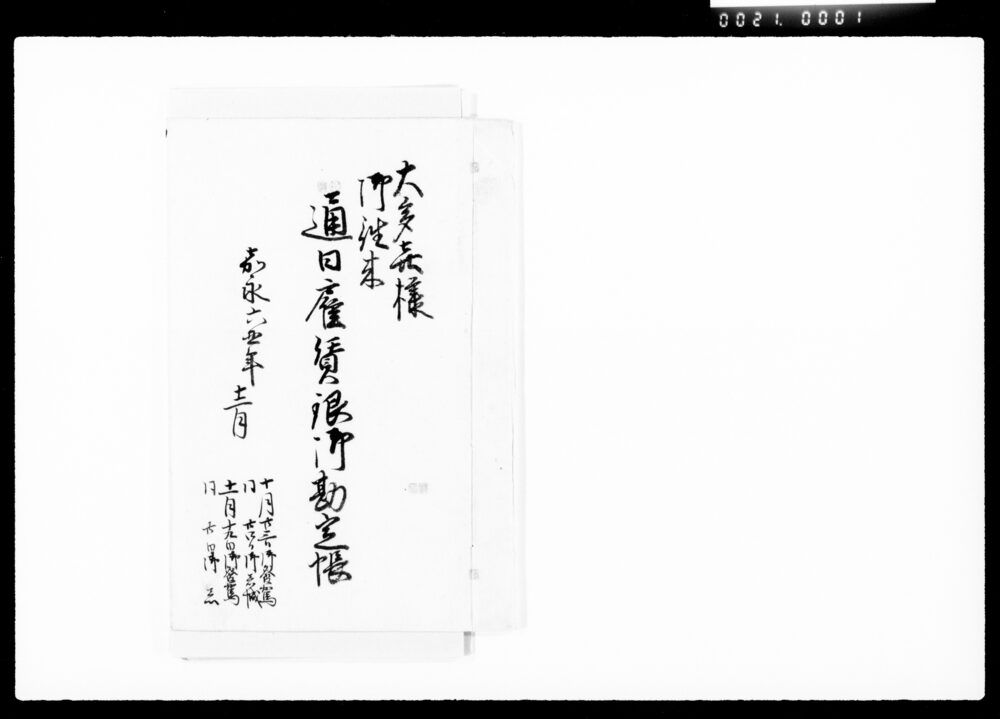 0021.0001
大多喜様
御往来
通日雇賃銀御勘定帳
嘉永六丑年
十二月
十月廿三日御発駕
同 廿六日御 城
十一月十九日御発駕
同 廿 日御